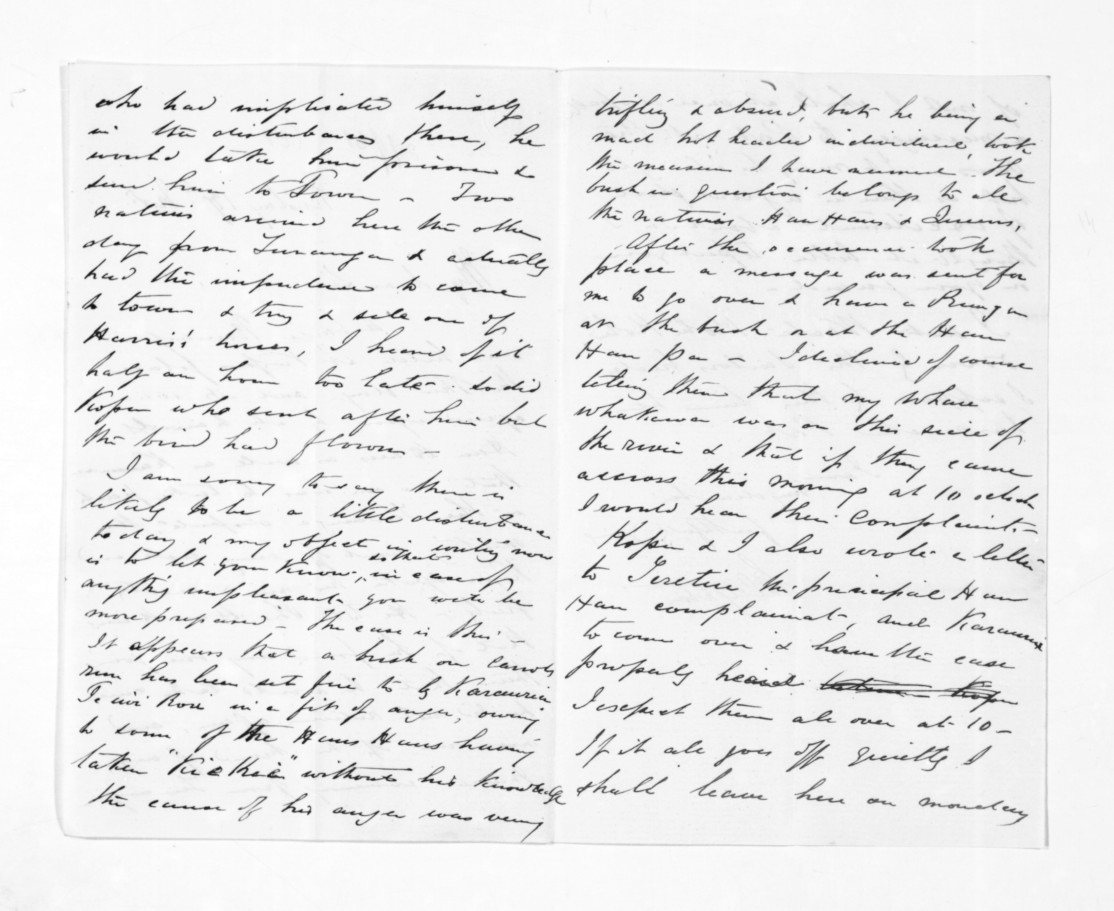 who had implicated himself
in the disturbances there, he
would take him prisoner &
send him to Town – Two
natives arrived here the other
day from Turanga & actually
had the impudence to come
to town & try & sell one of
Harris' horses, I heard of it
half an hour too late – so did
Kopu who sent after him but
the bird had flown –
I am sorry to say there is
likely to be a little disturbance
today & my object in writing now
is to let you know, so that in case of
anything unpleasant you will be
more prepared – The case is this –
It appears that a bush on Carrols
run has been set fire to by Karauria
Te iwi Rori in a fit of anger, owing
to some of the Hau Haus having
taken "Kie Kie" without his knowledge
the cause of his anger was very
trifling & absurd, but he being a
mad hot headed individual, took
the measures I have named – The
bush in question belongs to all
the natives. Hau Haus & Queens,
After the occurrence took
place a message was sent for
me to go over & have a Runanga
at the bush or at the Hau
Hau pa – I declined of course
telling them that my Whare
whakawa was on this side of
the river & that if they came
accross this morning at 10 oclock
I would hear their complaint –
Kopu & I also wrote a letter
to Teretiu the principal Hau
Hau complainant, and Karauria
to come over & have the case
properly heard.
I expect them all over at 10 –
If it all goes off quietly I
shall leave here on monday